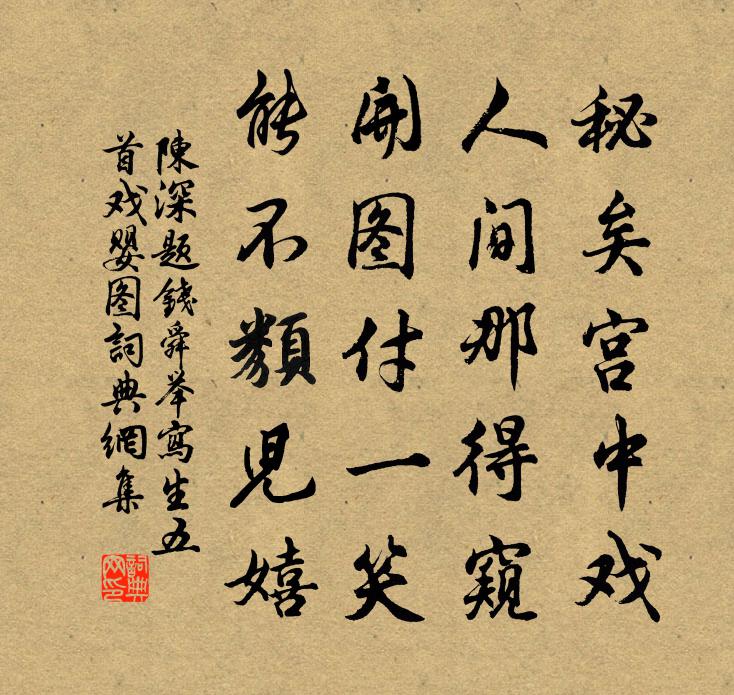 秘矣宫中戏
人间那得窥
開图付一笑
能不類児嬉
陳深题錢舜举寫生五
首戏婴图詞典網集
詞典
网印